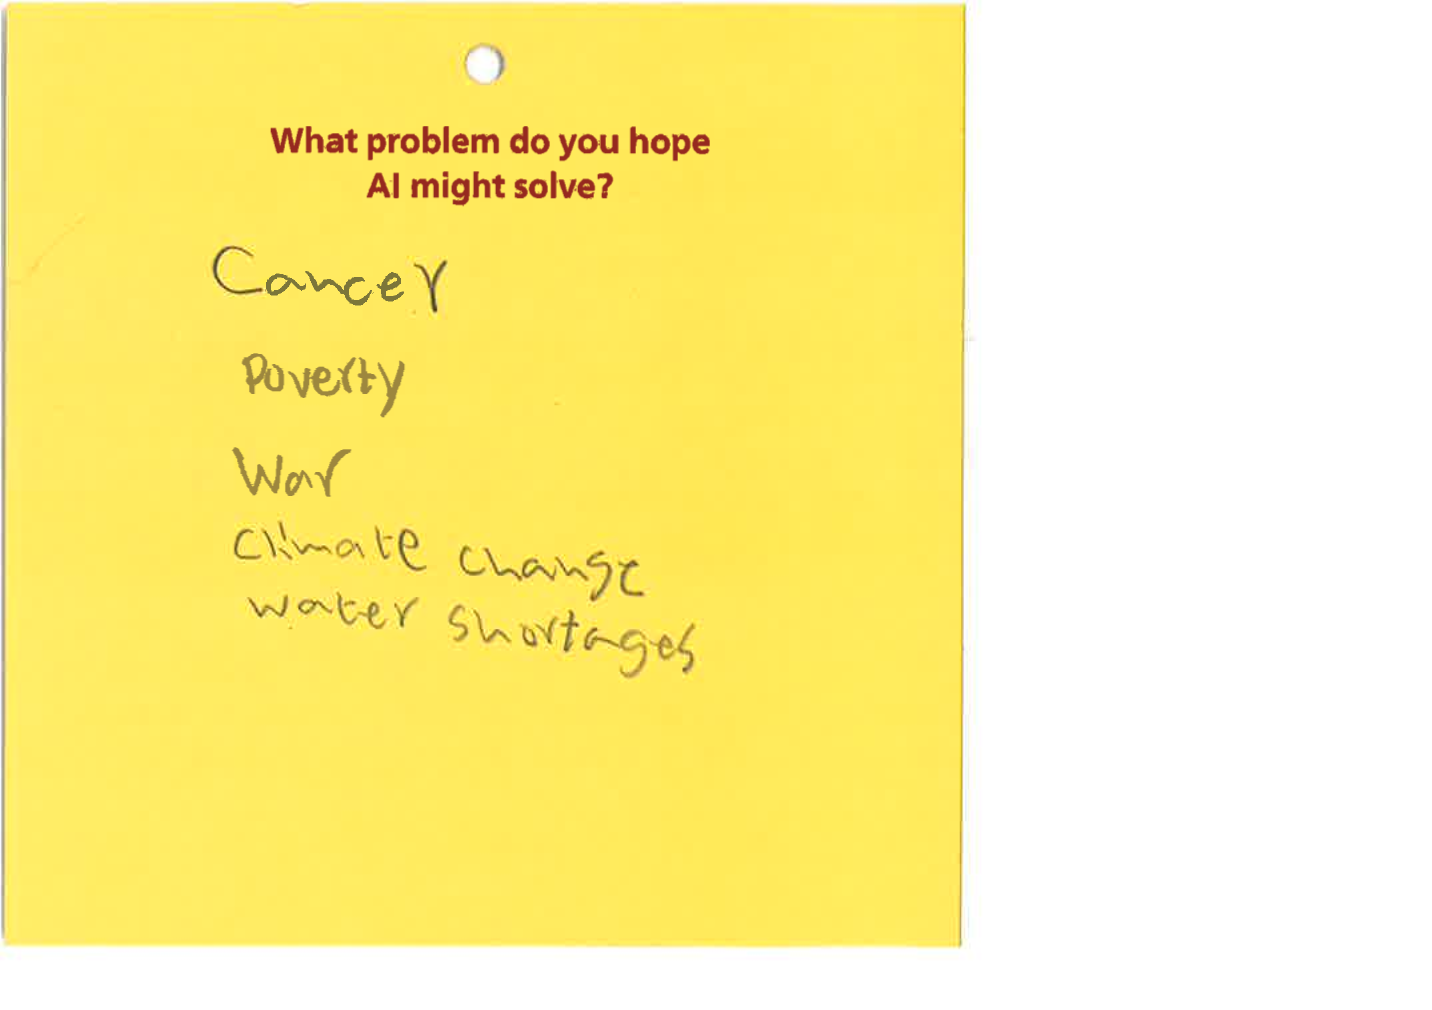 What problem do you hope
AI might solve?
Cancer
Poverty
War
climate change
water shortages